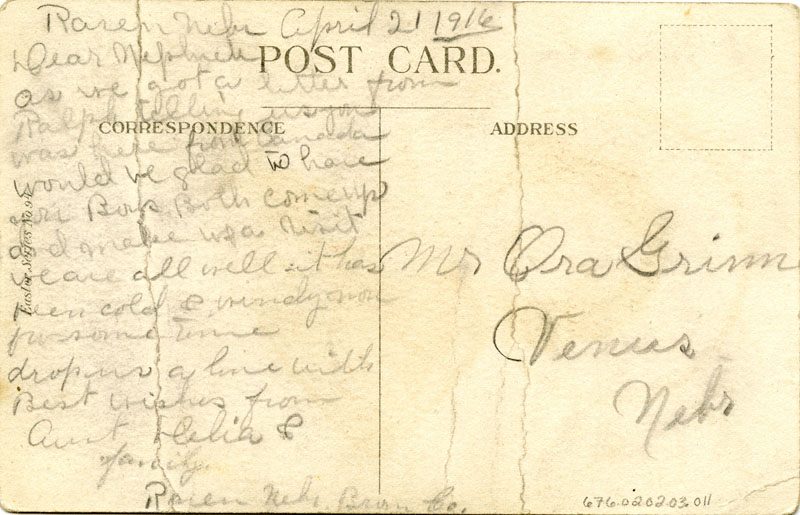 Raven Nebr April 21 1916
Dear Nephew
POST CARD.
as we got a letter from
Ralph telling us you
CORRESPONDENCE
ADDRESS
was here from Canada
would be glad to have
you Boys Both come up
and make us a visit
we are all well it has
been cold & windy now
for some time
drop us a line with
Best wishes from
Aunt Delia &
family
Raven Nebr. Brown Co.
Easter Series No 94
Mr Ora Grimm
Venus
Nebr
676.0202.03.011